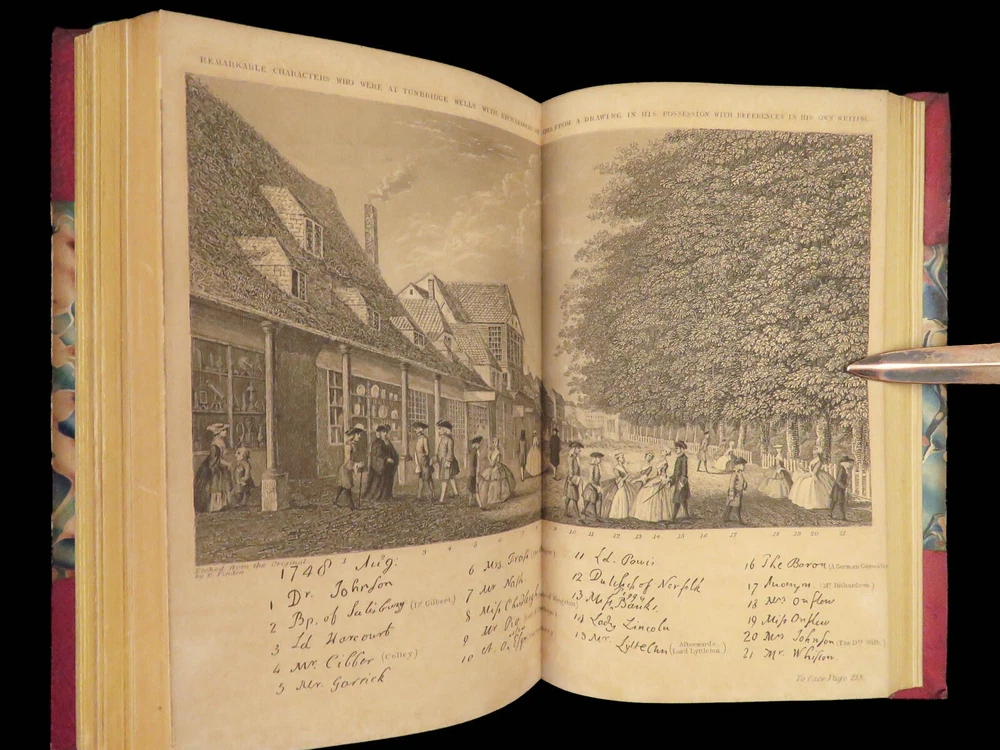 REMARKABLE CHARACTERS WHO WERE AT TUNBRIDGE WELLS WITH RICHARDSON FROM A DRAWING IN HIS POSSESSION WITH REFERENCES IN HIS OWN WRITING.
3 4 5 6 7 8 9 10 11 12 13 14 15 16 17 18 19 20 21
Etched from the Original
by E. Finden
1748 Aug:
1 Dr. Johnson
2 Bp. of Salisbury (Dr. Gilbert)
3 Ld Harcourt
4 Mr. Cibber (Colley)
5 Mr. Garrick
6 Mrs. Frasi
7 Mr Nash
8 Miss Chudleigh
9 Mr Pitt
10 A. Onslow
11 Ld. Powis
12 Dutchess of Norfolk
13 Miss Peggy Banks
14 Lady Lincoln
15 Mr. Lyttelton (Afterwards Lord Lyttleton.)
16 The Baron (A German Gamester)
17 Anonym. (Mr Richardson)
18 Mrs Onslow
19 Miss Onslow
20 Mrs Johnson (The Drs Wife.)
21 Mr. Whiston
To face Page